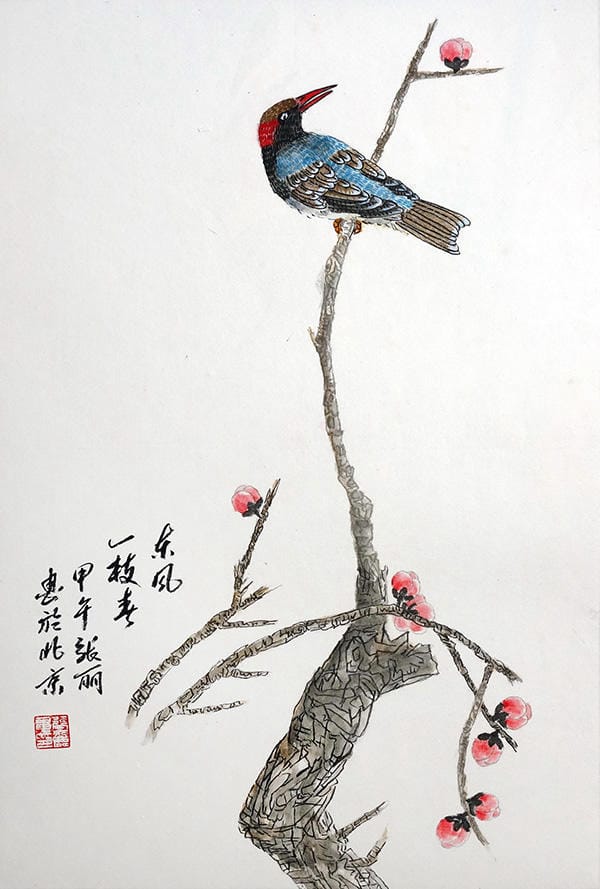 东风
一枝春
甲午张丽
惠於北京